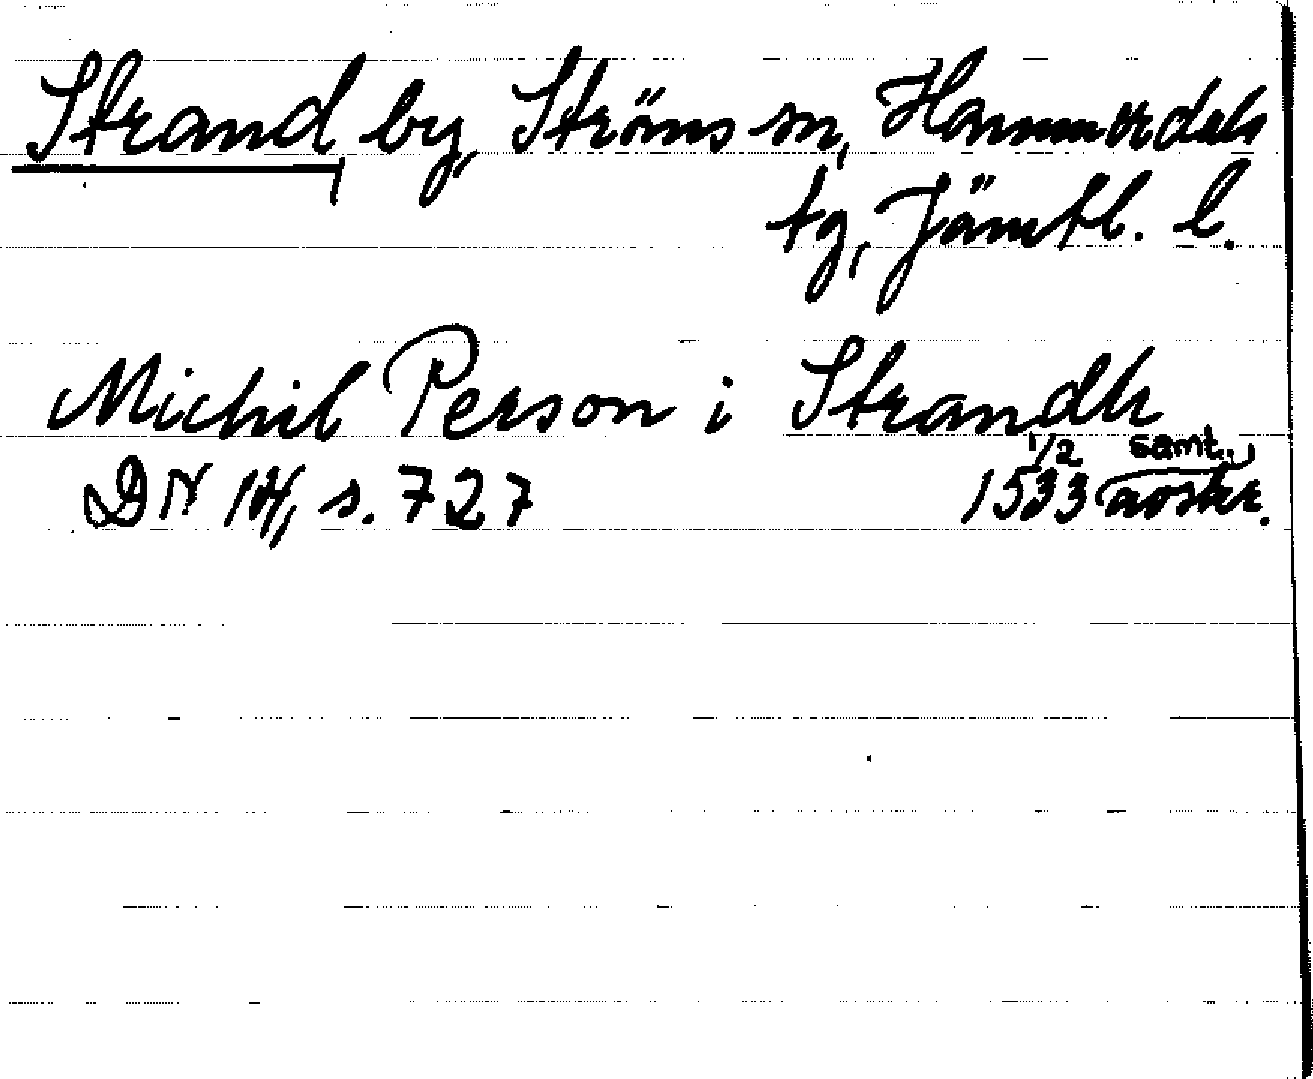 Strand, by, Ströms sn, Hammerdals
tg, Jämtl. l.
Michil Person i Strandh
DN 14, s. 727 1/2 1533 samt. avskr.